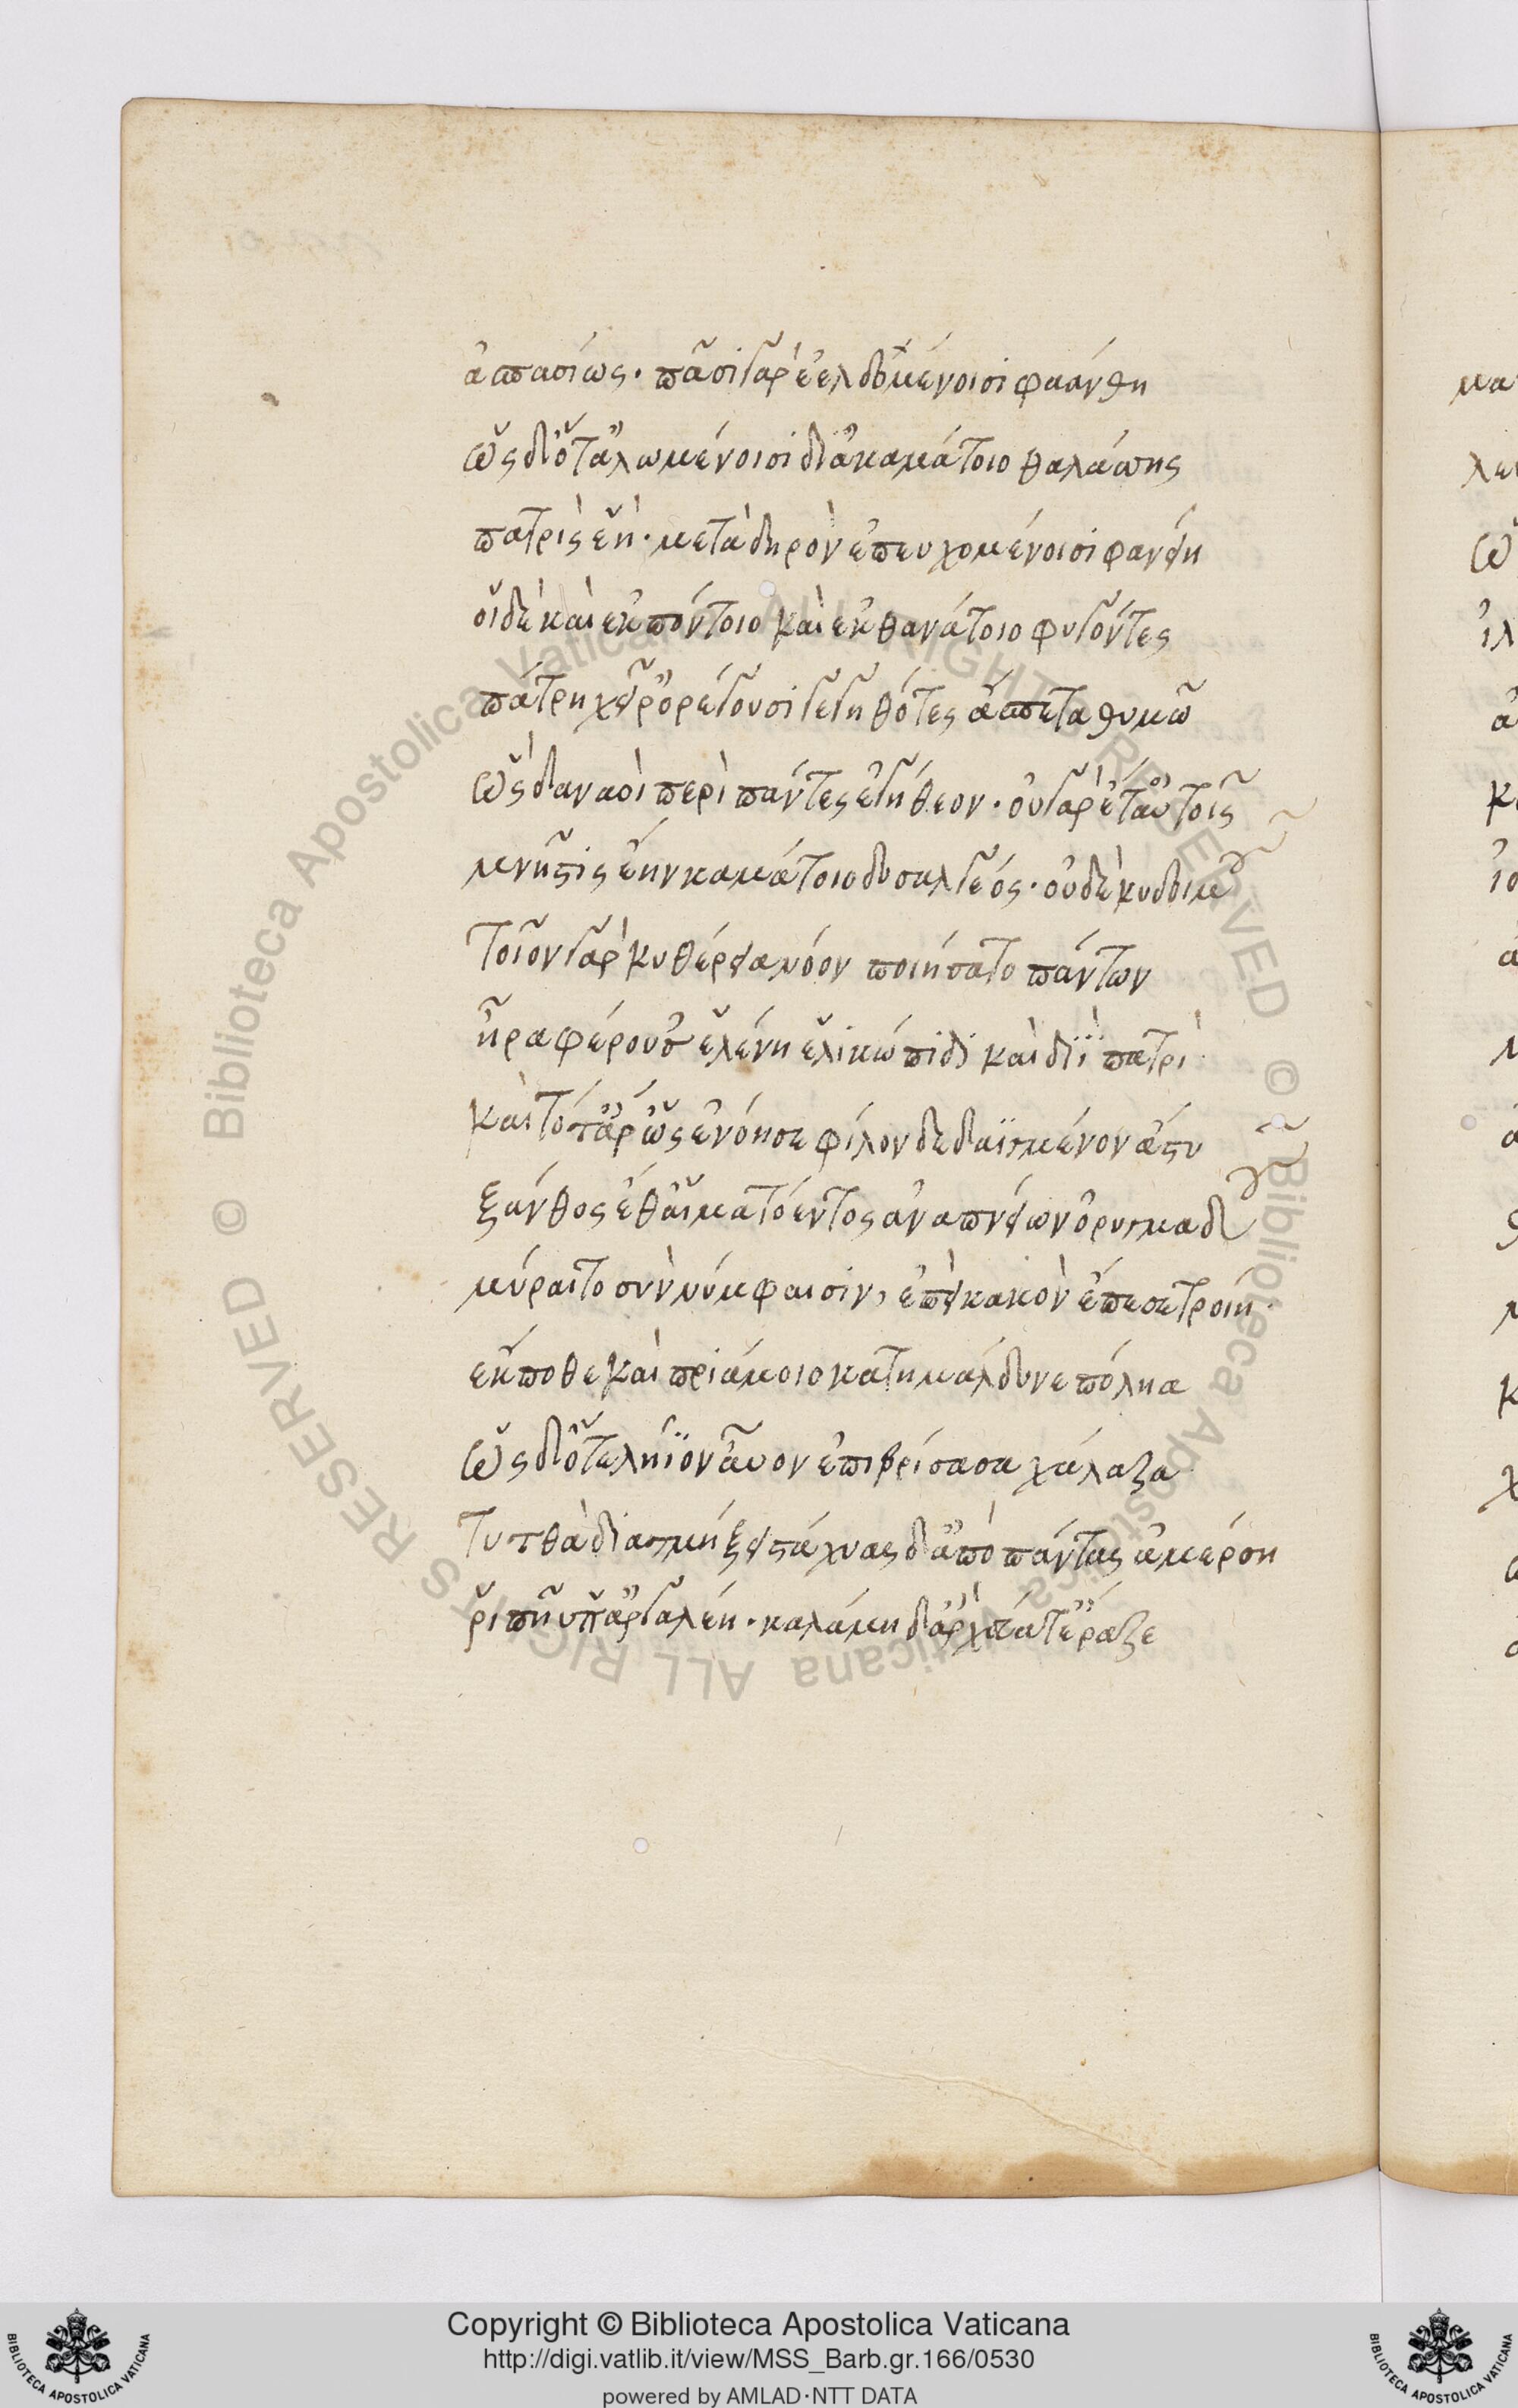 ἀσπασίως· πᾶσι γὰρ ἐελδομένοισι φαάνθη
ὡς δ' ὅτ' ἀλωμένοισι δι' ἀκαμάτοιο θαλάσσης
πατρὶς ἑὴ· μετὰ δηρὸν ἐπευχομένοισι φανείη
οἱ δὲ καὶ ἐκ πόντοιο καὶ ἐκ θανάτοιο φυγόντες
πάτρη χεῖρ' ὀρέγουσι γεγηθότες ἄσπετα θυμῶ
ὡς δαναοὶ περὶ πάντες ἐγήθεον· οὐ γὰρ ἔτ' αὐτοῖς
μνῆστις ἔην καμάτοιο δυσαλγέος· οὐδὲ κυδοιμοῦ
τοῖον γὰρ κυθέρεια νόον ποιήσατο πάντων
ἦρα φέρουσ' ἑλένη ἑλικώπιδι καὶ διῒ πατρὶ
καὶ τότ' ἄρ' ὡς ἐνόησε φίλον δεδαϊγμένον ἄστυ
ξάνθος ἔθ' αἱματόεντος ἀναπνείων ὀρυμαγδοῦ
μύρατο σὺν νύμφαισιν, ἐπεὶ κακὸν ἔμπεσε τροίη
ἔκποθε καὶ πριάμοιο κατημάλδυνε πόληα
ὡς δ' ὅτε λήϊον αὖον ἐπιβρίσασα χάλαζα
τυτθὰ διατμήξει στάχυας δ' ἀπὸ πάντας ἀμέρση
ῥιπῆ ὑπ' ἀργαλέη· καλάμη δ' ἄρχετ' ἔραζε
Copyright © Biblioteca Apostolica Vaticana
http://digi.vatlib.it/view/MSS_Barb.gr.166/0530
powered by AMLAD·NTT DATA